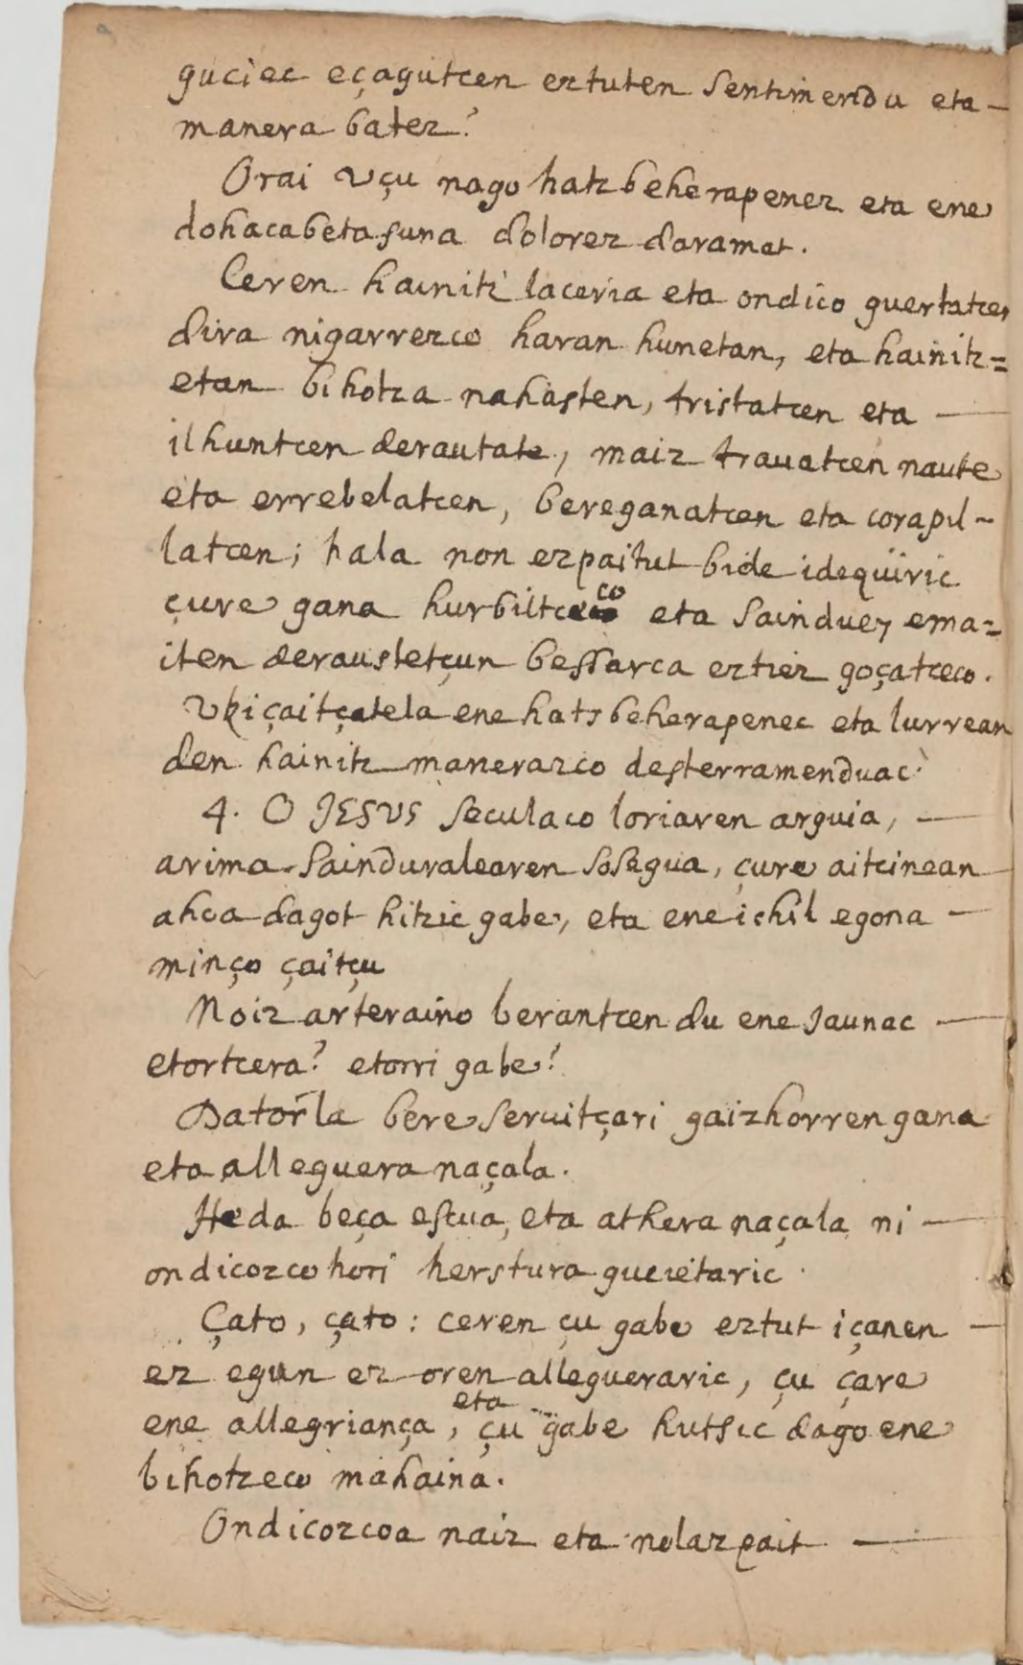 guciec eçagutcen eztuten sentimendu eta —
manera batez?
Orai uçu nago hatz beherapenez eta ene
dohacabetasuna dolorez daramat.
Ceren hainitz laceria eta ondico guertatcen
dira nigarrezco haran hunetan, eta hainitz=
etan bihotza nahasten, tristatcen eta —
ilhuntcen derautate, maiz trauatcen naute
eta errebelatcen, bereganatcen eta corapil-
latcen; hala non ezpaitut bide idequiric
çure gana hurbiltceco eta sainduey ema=
iten deraustetçun bessarca eztiez goçatceco.
Vkiçaitçatela ene hats beherapenec eta lurrean
den hainitz manerazco desterramenduac.
4. O JESUS seculaco loriaren arguia, —
arima sainduralearen sosegua, çure aitcinean
ahoa dagot hitzic gabe, eta ene ichil egona —
minço çaitçu
Noiz arteraino berantcen du ene Jaunac —
etortcera? etorri gabe?
Dator̃la bere seruitçari gaizhorren gana
eta alleguera naçala.
Heda beça escua, eta athera naçala ni —
ondicozco hori herstura gucietaric.
Çato, çato: ceren çu gabe eztut içanen —
ez egun ez oren allegueraric, çu çare
ene allegriança, eta çu gabe hutsic dago ene
bihotzeco mahaina.
Ondicozcoa naiz eta nolazpait —